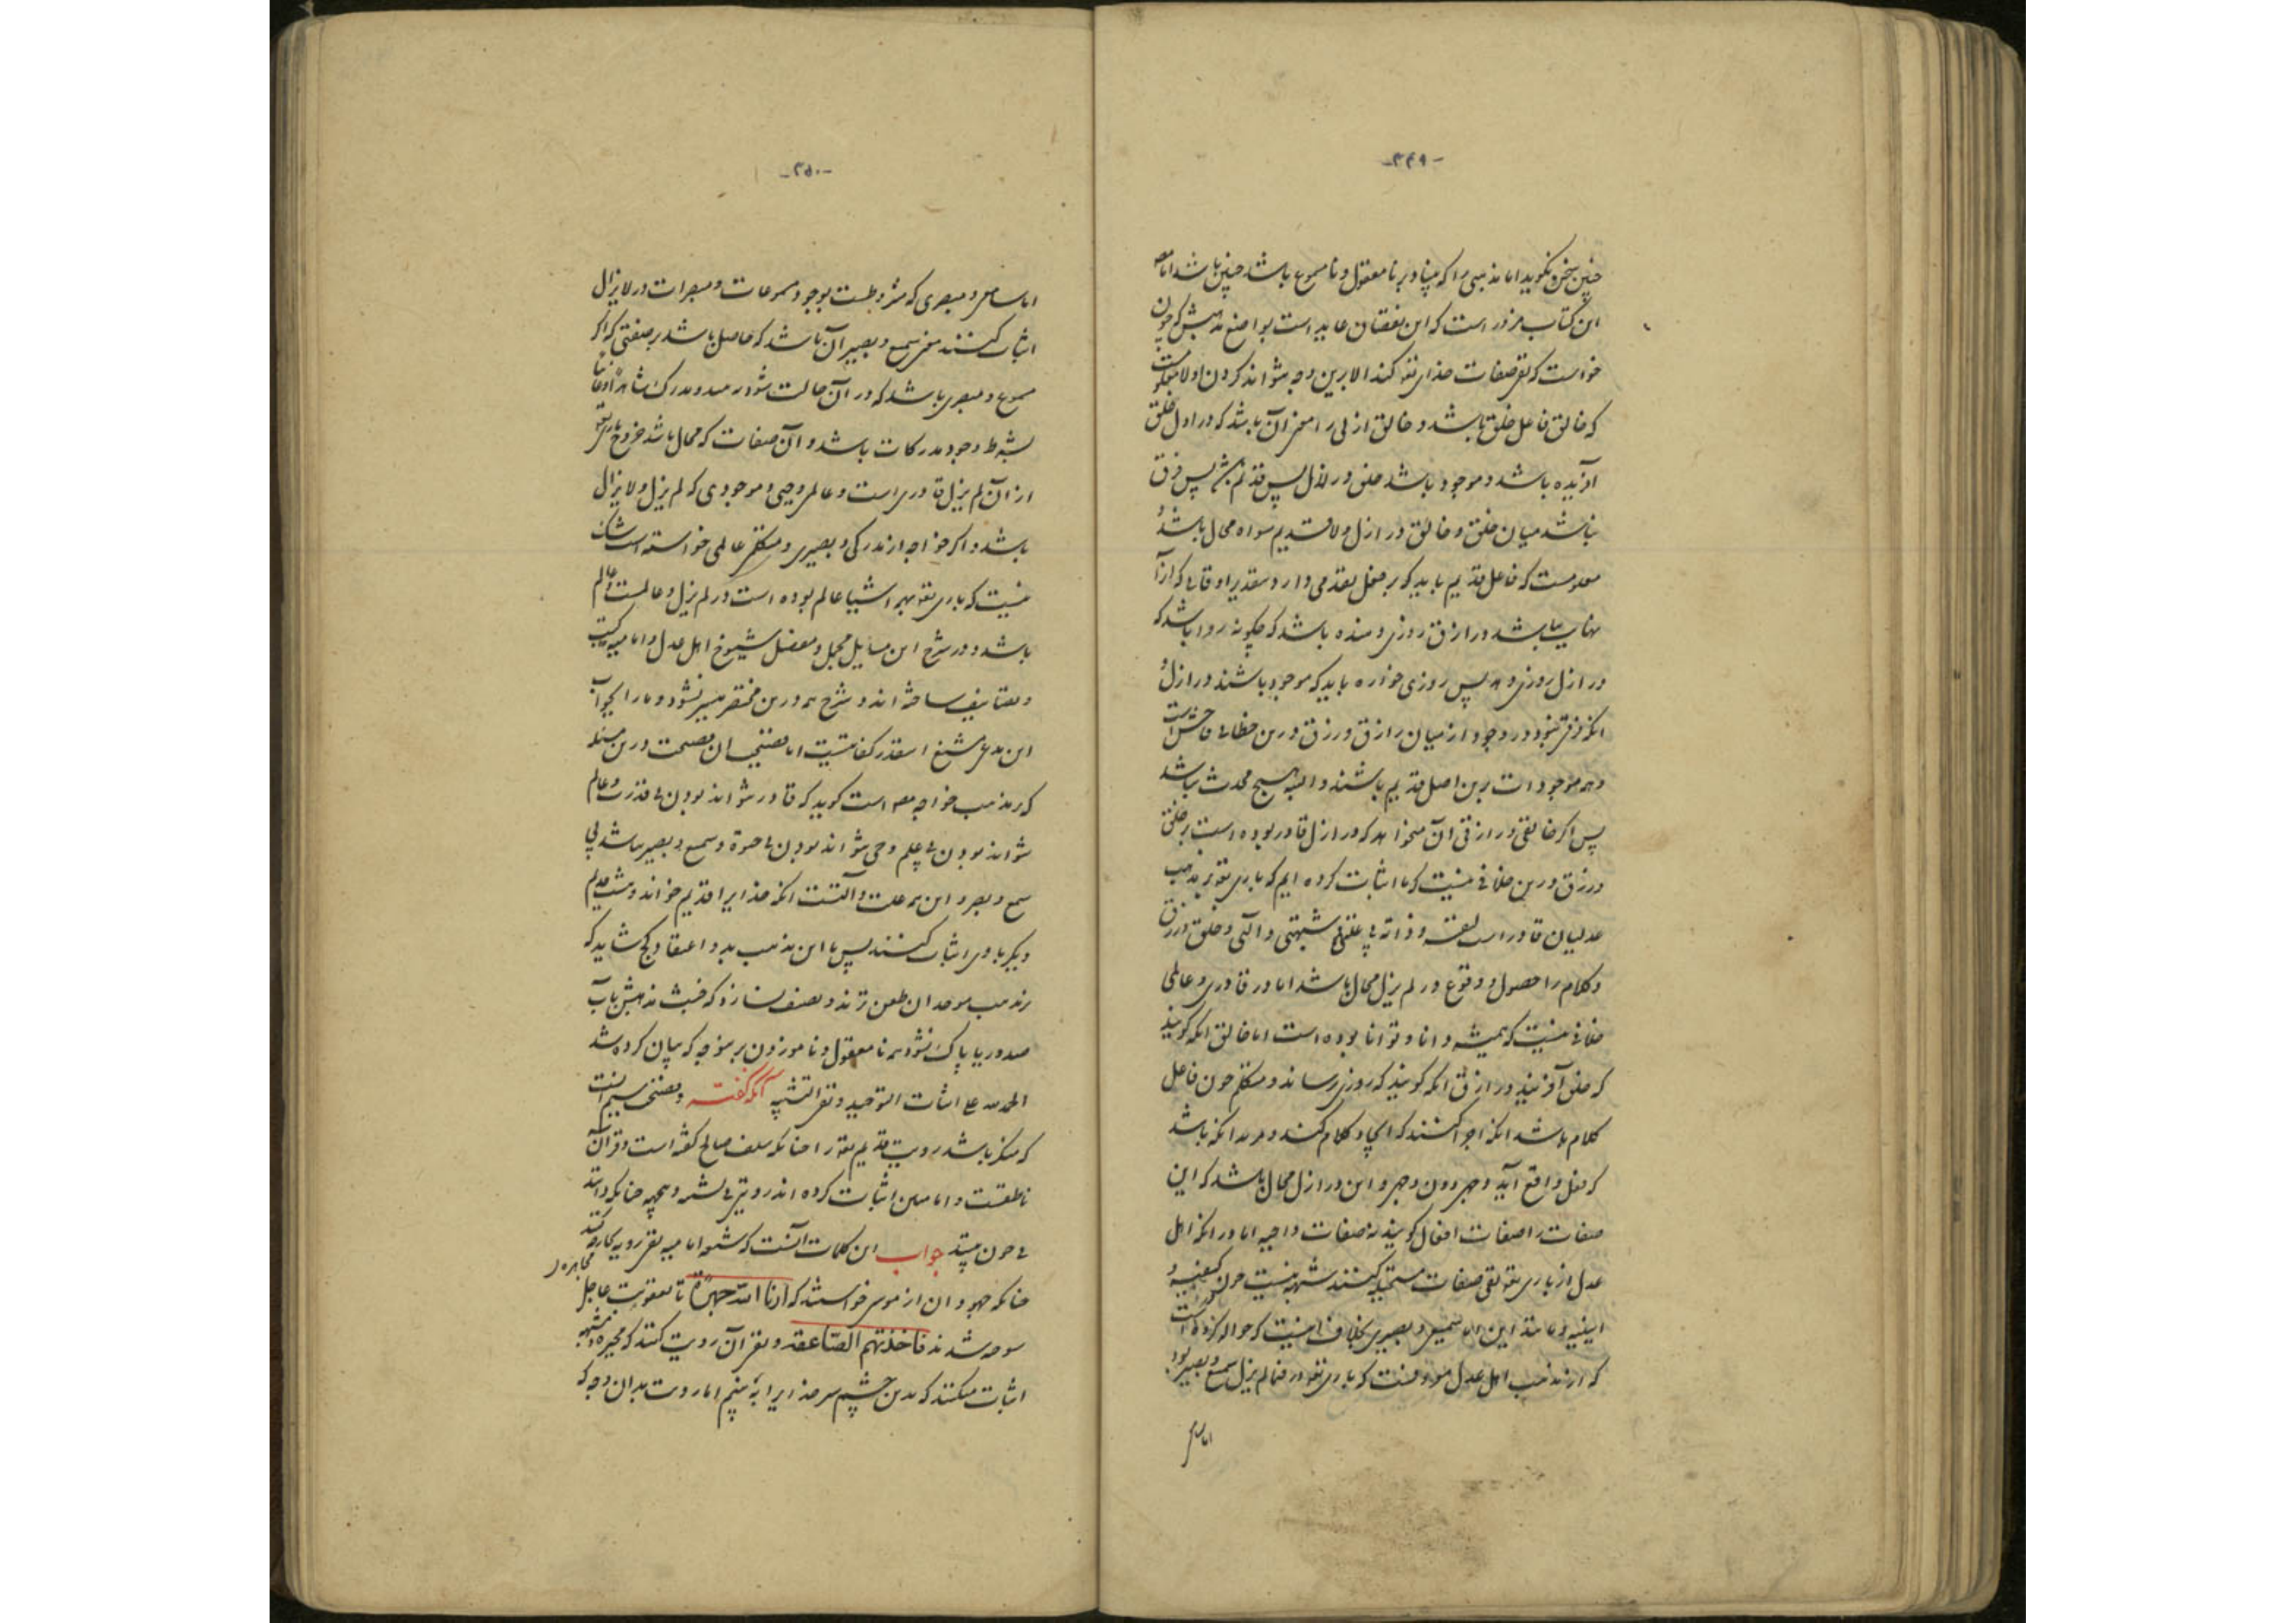 -۴۴۹-
چنین سخره نگوید اما مذهبی را که بنیاد بر نامعقول و نامسموع باشد چنین باشد اما
این کتاب مزور است که این نقصان عاید است بواضع مذهبش که چون
خواست که نفی صفات خدای تعالی کند الا برین وجه نتواند کردن اولا
که خالق فاعل خلق باشد و خالق ازلی را معنی آن باشد که در ازل خلق
آفریده باشد و موجود باشد خلق در ازل پس قدیم باشد پس فرق
نباشد میان خلق و خالق در ازل و لا قدیم سواه محال باشد و
معلومست که فاعل قدیم باید که بر فعل تقدمی دارد بتقدیر اوقاتی که آنرا
نهایت نباشد و رازق روزی دهنده باشد که چگونه روا باشد که
در ازل روزی دهد پس روزی خواره باید که موجود باشند در ازل و
آنکه فرقی نبود در وجود از میان رازق و رزق و درین خطائی فاحش است
و همه موجودات برین اصل قدیم باشند و البته هیچ محدث نباشد
پس اگر خالقی و رازقی آن میخواهد که در ازل قادر بوده است بر خلق
و رزق درین خلافی نیست که ما اثبات کرده ایم که باری تعالی بر مذهب
عدلیان قادر است لنفسه و ذاته بی علتی و شبهتی و آلتی و خلق و رزق
و کلام را حصول و وقوع در لم یزل محال باشد اما در قادری و عالمی
خلافی نیست که همیشه دانا و توانا بوده است اما خالق آنکه گویند
که خلق آفریند و رازق آنکه گویند که روزی رساند و متکلم چون فاعل
کلام باشد آنکه اجرا کنند که ایجاد کلام کند و مرید آنکه باشد
که فعل واقع آید وجهی دون وجهی و این در ازل محال باشد که این
صفات را صفات افعال گویند نه صفات واجبه اما در آنکه اهل
عدل از باری تعالی نفی صفات مستحیله کنند شبهه نیست چون کیفیه و
اینیه و مانند این اما سمیعی و بصیری بخلاف اینست که حواله کرده است
که از مذهب اهل عدل معروفست که باری تعالی در فیما لم یزل سمیع و بصیر بود
اما سامع
-۴۵۰-
اما سامعی و مبصری که مشروطست بوجود مسموعات و مبصرات در لا یزال
اثبات کنند معنی سمیع و بصیر آن باشد که حاصل باشد بر صفتی که اگر
مسموع و مبصری باشد که در آن حالت شنود و بیند و مدرک
بشرط وجود مدرکات باشد و آن صفات که محال باشد خروج باری تعالی
از آن لم یزل قادری است و عالمی و حیی و موجودی که لم یزل و لا یزال
باشد و اگر خواجه از مدرکی و بصیری و متکلمی عالمی خواسته است شک
نیست که باری تعالی بهمه اشیا عالم بوده است در لم یزل و عالمست و عالم
باشد و در شرح این مسایل مجمل و مفصل شیوخ اهل عدل و امامیه کتب
و تصانیف ساخته اند و شرح همه درین مختصر میسر نشود و ما را بجواب
این مدعی مشنع اینقدر کفایتست اما فضیحت درین مسئله
که مذهب خواجه مصنف است گوید که قادر نتواند بودن بی قدرت و عالم
نتواند بودن بی علم و حی نتواند بودن بی حیوة و سمیع و بصیر نباشد بی
سمع و بصر و این همه علت و آلتست آنکه خدایرا قدیم خواند و هشت قدیم
دیگر با وی اثبات کنند پس با این مذهب بد و اعتقاد کج شاید که
در مذهب موحدان طعن زند و تصنیف سازد که خبث مذهبش بآب
صد دریا پاک نشود همه نامعقول و ناموزون بر موجبی که بیان کرده شد
الحمد لله علی اثبات التوحید و نفی التشبیه آنگه گفته و فضیحت بیستم آنست
که منکر باشد رویت قدیم تعالی را چنانکه سلف صالح گفته است و قرآن
ناطقست و اماما سلف اثبات کرده اند رویتی بی شبه و جهة چنانکه دانند
بی چون بینند جواب این کلمات آنست که شیعه امامیه نفی رویه کرده اند
مجاهره
چنانکه جهودان از موسی خواستند که ارنا الله جهرة تا بعقوبت عاجل
سوخته شدند فاخذتهم الصاعقة و نفی آن رویت کنند که مجبره و مشبهه
اثبات میکنند که بدین چشم سر خدایرا به بینیم اما رویت بدان وجه که